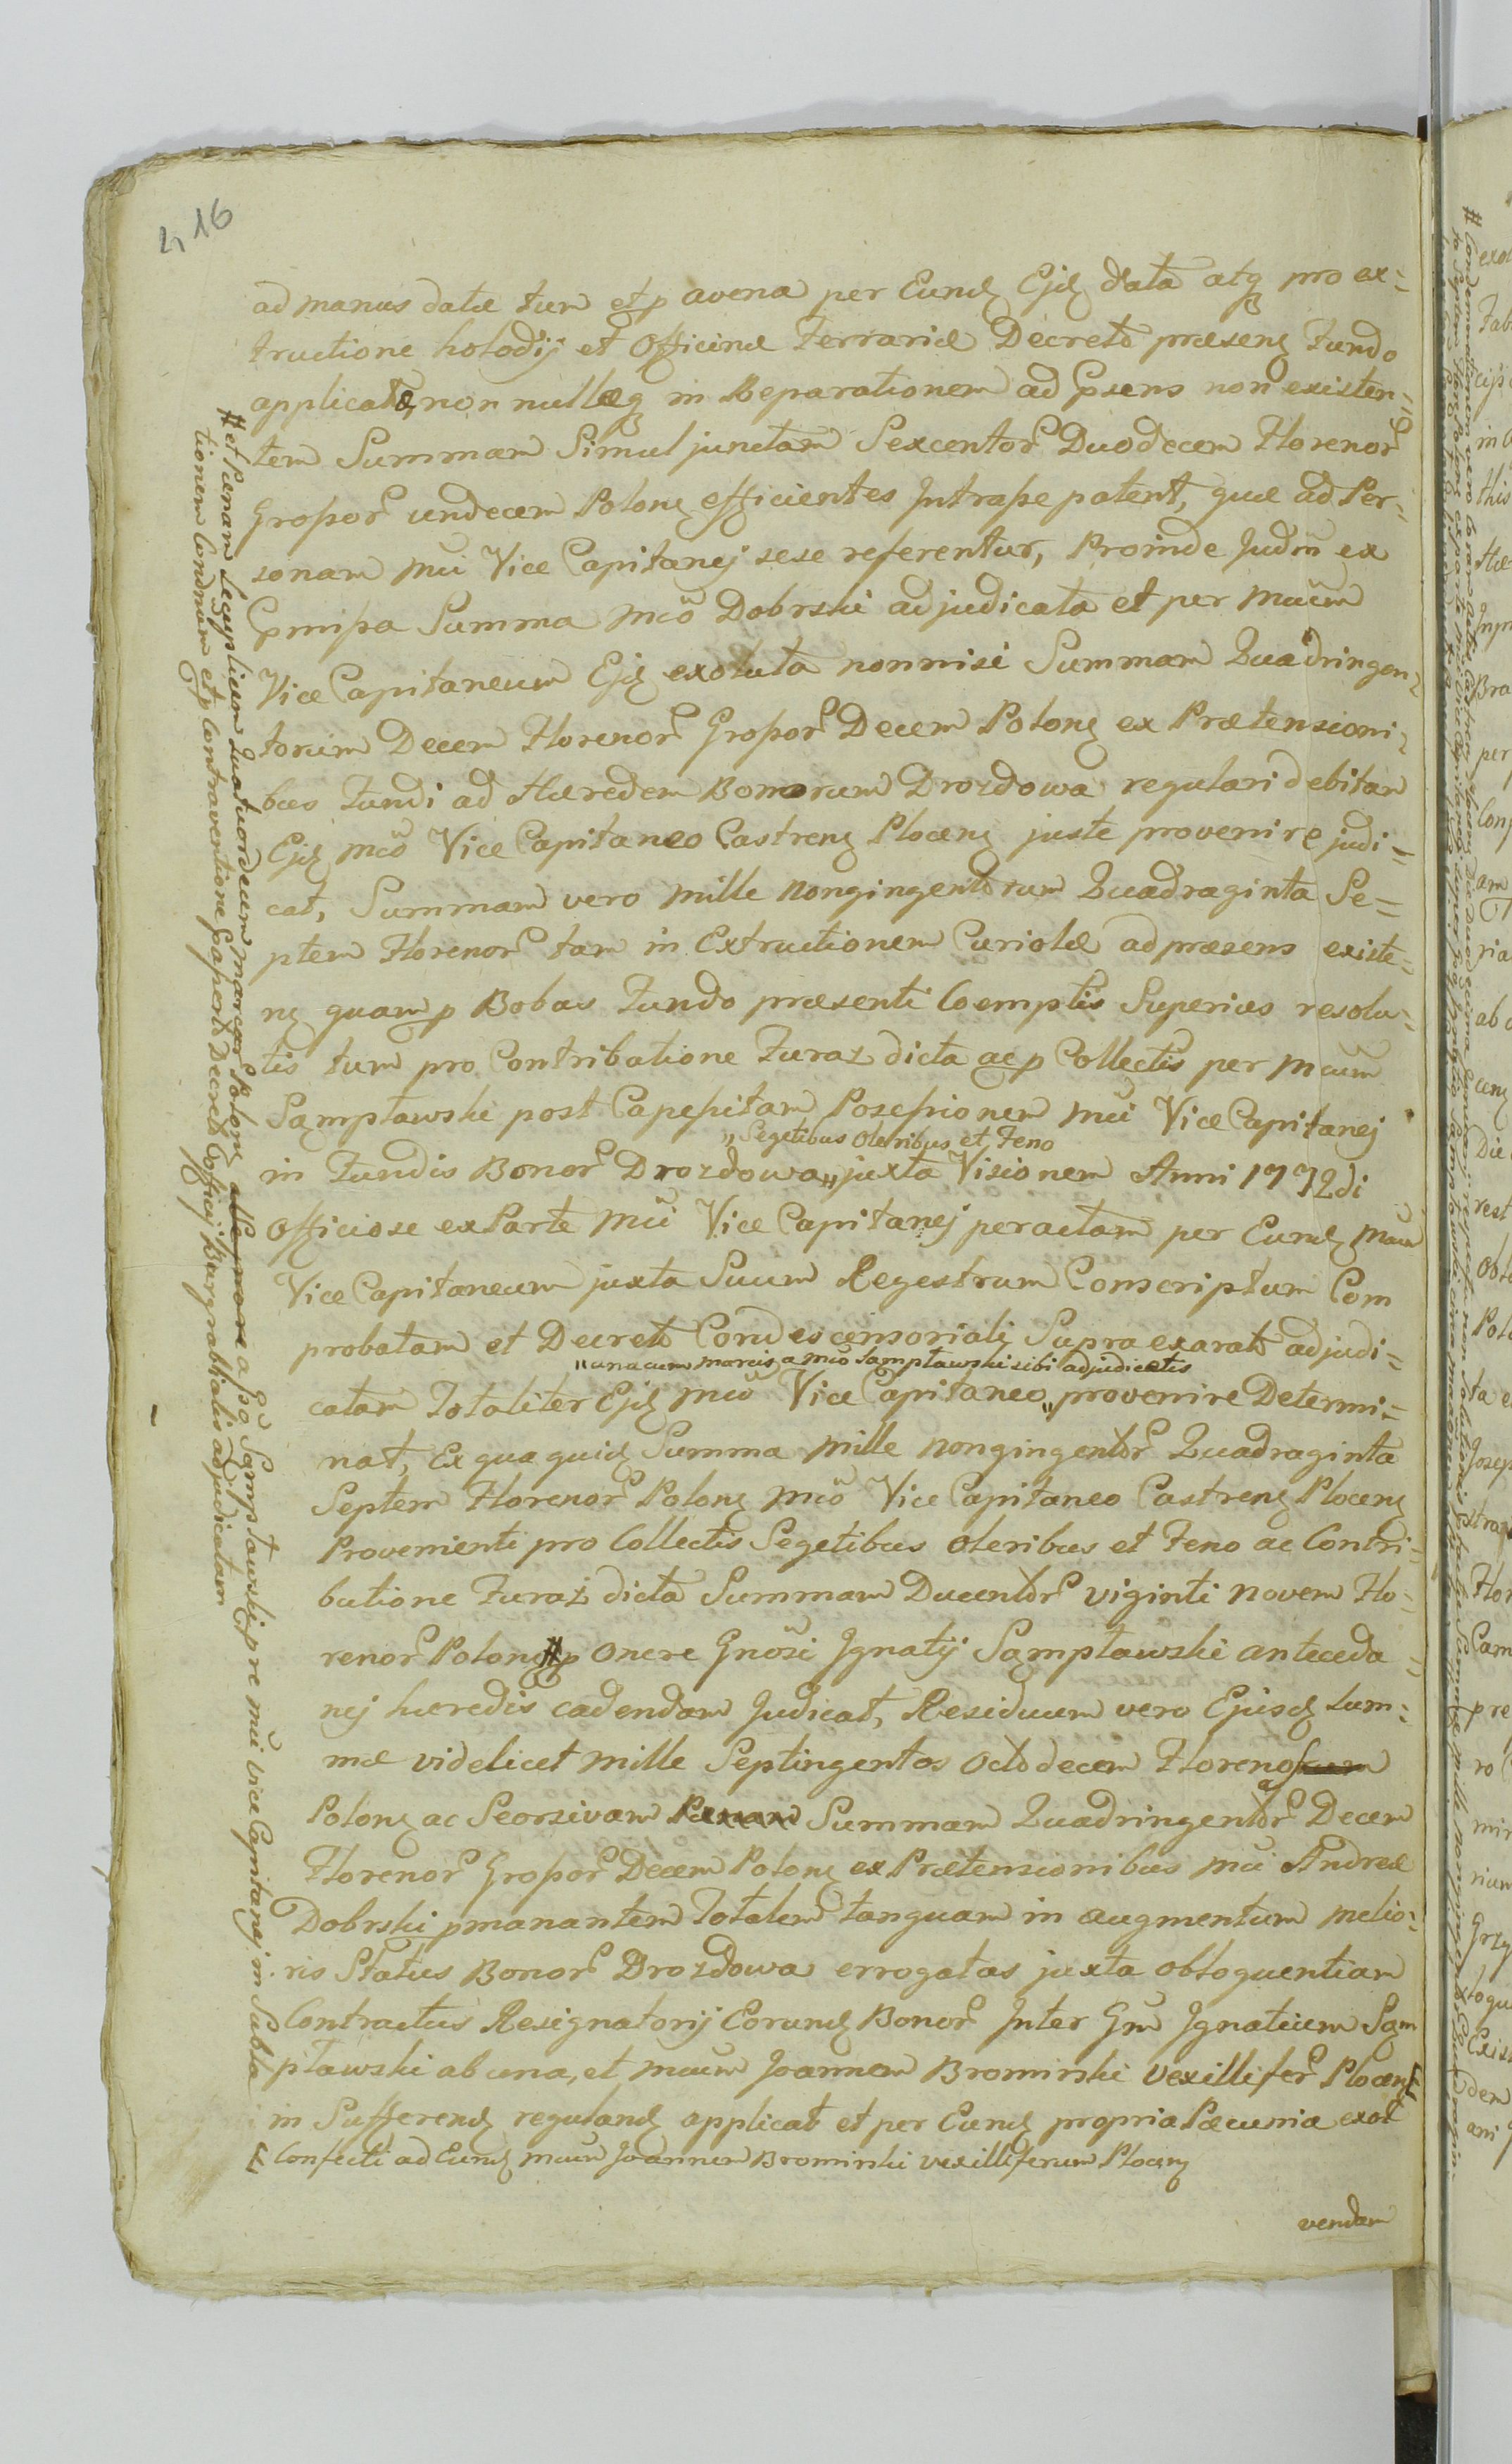 416
ad manus datæ tum et p avena per Eundɇ Ejɇ data atq pro ex=
tructione holodij et Officinæ Ferrariæ Decreto præsenɇ Fundo
applicatæ, non nullæq in Reparationem ad Psens non existen=
tem Summam Simul junctam Sexcentor Duodecem Florenor
Grossor undecem Polonɇ efficientes Intrasse patent, quæ ad Per=
sonam Mci Vice Capitanej sese referentur, Proinde Judm ex
Pmissa Summa Mco Dobrski adjudicata et per Mcum
Vice Capitaneum Ejɇ exoluta nonnisi Summam Quadringen=
torum Decem Florenor Grossor Decem Polonɇ ex Prætensioni=
bus Fundi ad Hæredem Bonorum Drozdowa regulari debitam
Ejɇ Mco Vice Capitaneo Castrenɇ Plocenɇ juste provenire judi=
cat, Summam vero mille nongingentorum Quadraginta Se=
ptem Florenor tam in Extructionem Curiolæ ad præsens existe=
nɇ quam p Bobus Fundo præsenti Coemptis Superius resolu=
tis tum pro Contributione Furaz dicta ac p Collectis per Mcum
Sampławski post Capessitam Possessionem Mci Vice Capitanej
„Segetibus Oleribus et Feno
in Fundis Bonor Drozdowa„ juxta Visionem Anni 1772di
Officiose ex Parte Mci Vice Capitanej peractam per Eundɇ Mcum
Vice Capitaneum juxta Suum Regestrum Conscriptum Com
probatam et Decreto Condescensorialj Supra exarato adjudi=
„unacum marcis a Mco Sampławski sibi adjudicatis
catam Totaliter Ejɇ Mco Vice Capitaneo„ provenire Determi=
nat, Ex qua quidɇ Summa mille nongingentor Quadraginta
Septem Florenor Polonɇ Mco Vice Capitaneo Castrenɇ Plocenɇ
Provenienti pro Collectis Segetibus Oleribus et Feno ac Contri=
butione Furaż dicta Summam Ducentor viginti novem Flo=
renor Polonɇ # p Onere Gnosi Ignatij Sampławski antecedа=
nej hæredis cadendam Judicat, Residuum vero Ejusdɇ Sum=
mæ videlicet mille Septingentos Octodecem Florenos
Polonɇ ac Seorsivam Pænam Summam Quadringentor Decem
Florenor Grossor Decem Polonɇ ex Prætensionibus Mci Andreæ
Dobrski pmanantem Totalem tanquam in augmentum melio=
ris Status Bonor Drozdowa errogatas juxta obloquentiam
Contractus Resignatorij Eorundɇ Bonor Inter Gm Ignatium Sam
pławski ab una, et Mcum Joannem Bromirski Vexillifer Plocenɇ
in Sufferendɇ regulandɇ applicat et per Eundɇ propria Pæcunia exol
Confecti ad Eundɇ Mcum Joannem Bromirski vexilliferum Plocenɇ
vendam
# et Pænam Sexuplicem Quatuordecem marcar Polonɇ a Go Sampławski, p re Mci Vice Capitanej in Subla
tionem Condemnɇ et p Contraventione Caperto Decreto Officij Burgrabialis adjudicatam